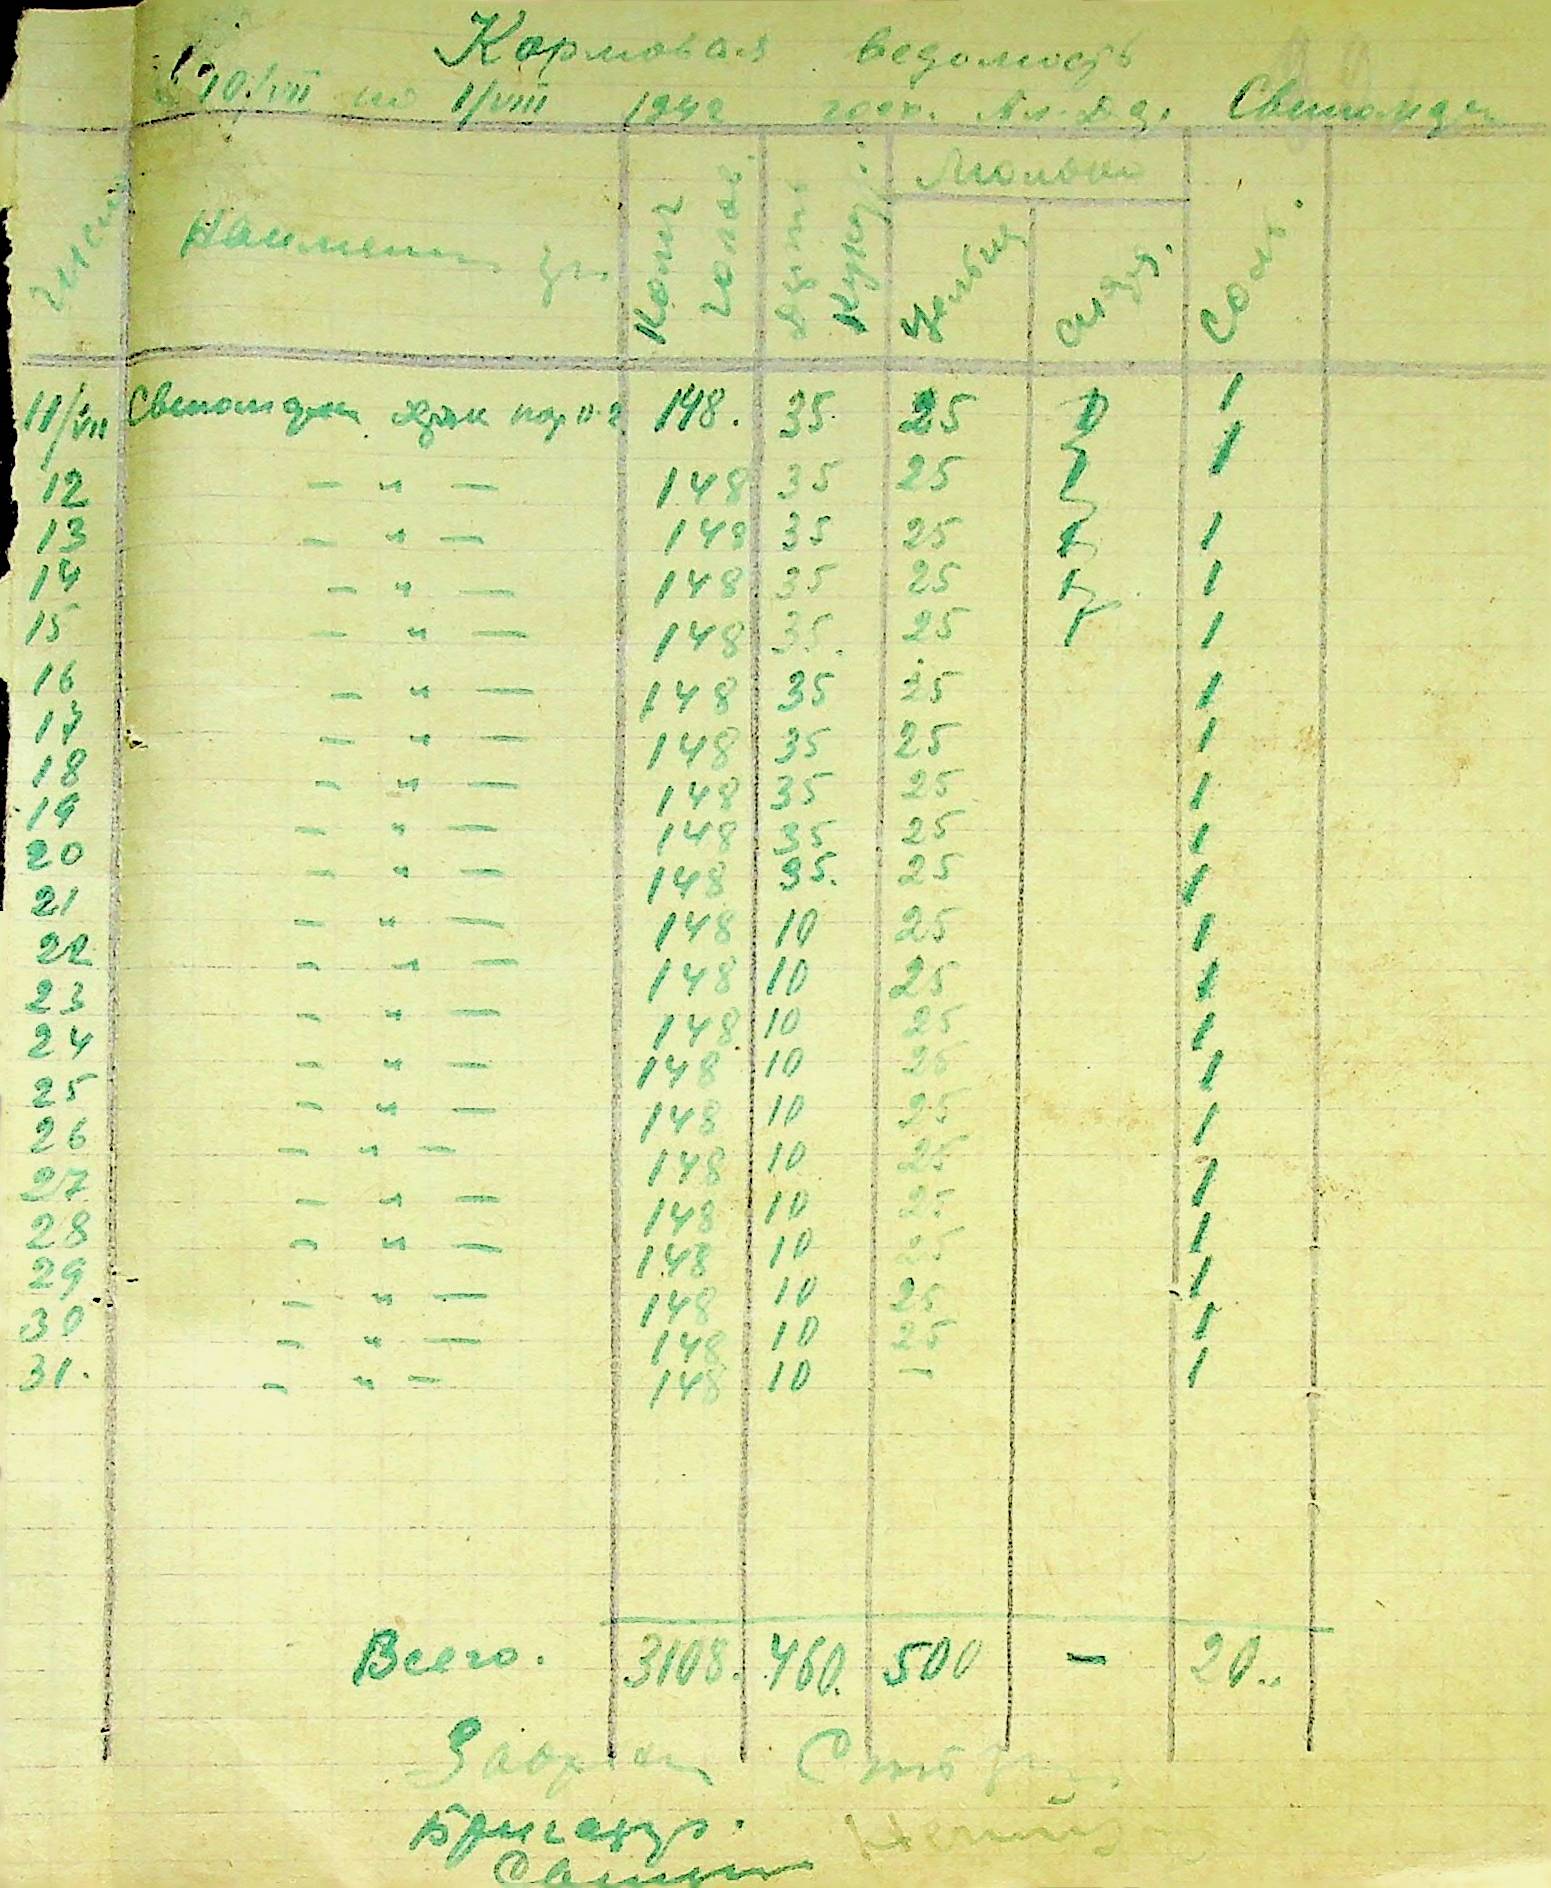 Кормовая ведомость
10/VII по 1/VIII 1942
Число
Колич. голов.
Молоко
Цельное
Соль.
11/VII 148. 35. 25 1
12 — " — 148 35 25 1
13 — " — 148 35 25 1
14 — " — 148 35 25 1
15 — " — 148 35. 25 1
16 — " — 148 35 25 1
17 — " — 148 35 25 1
18 — " — 148 35 25 1
19 — " — 148 35 25 1
20 — " — 148 35. 25 1
21 — " — 148 10 25 1
22 — " — 148 10 25 1
23 — " — 148 10 25 1
24 — " — 148 10 25 1
25 — " — 148 10 25 1
26 — " — 148 10 25 1
27 — " — 148 10 25 1
28 — " — 148 10 25 1
29 — " — 148 10 25 1
30 — " — 148 10 25 1
31. — " — 148 10 — 1
Всего. 3108. 460. 500 — 20..
Бригадир.